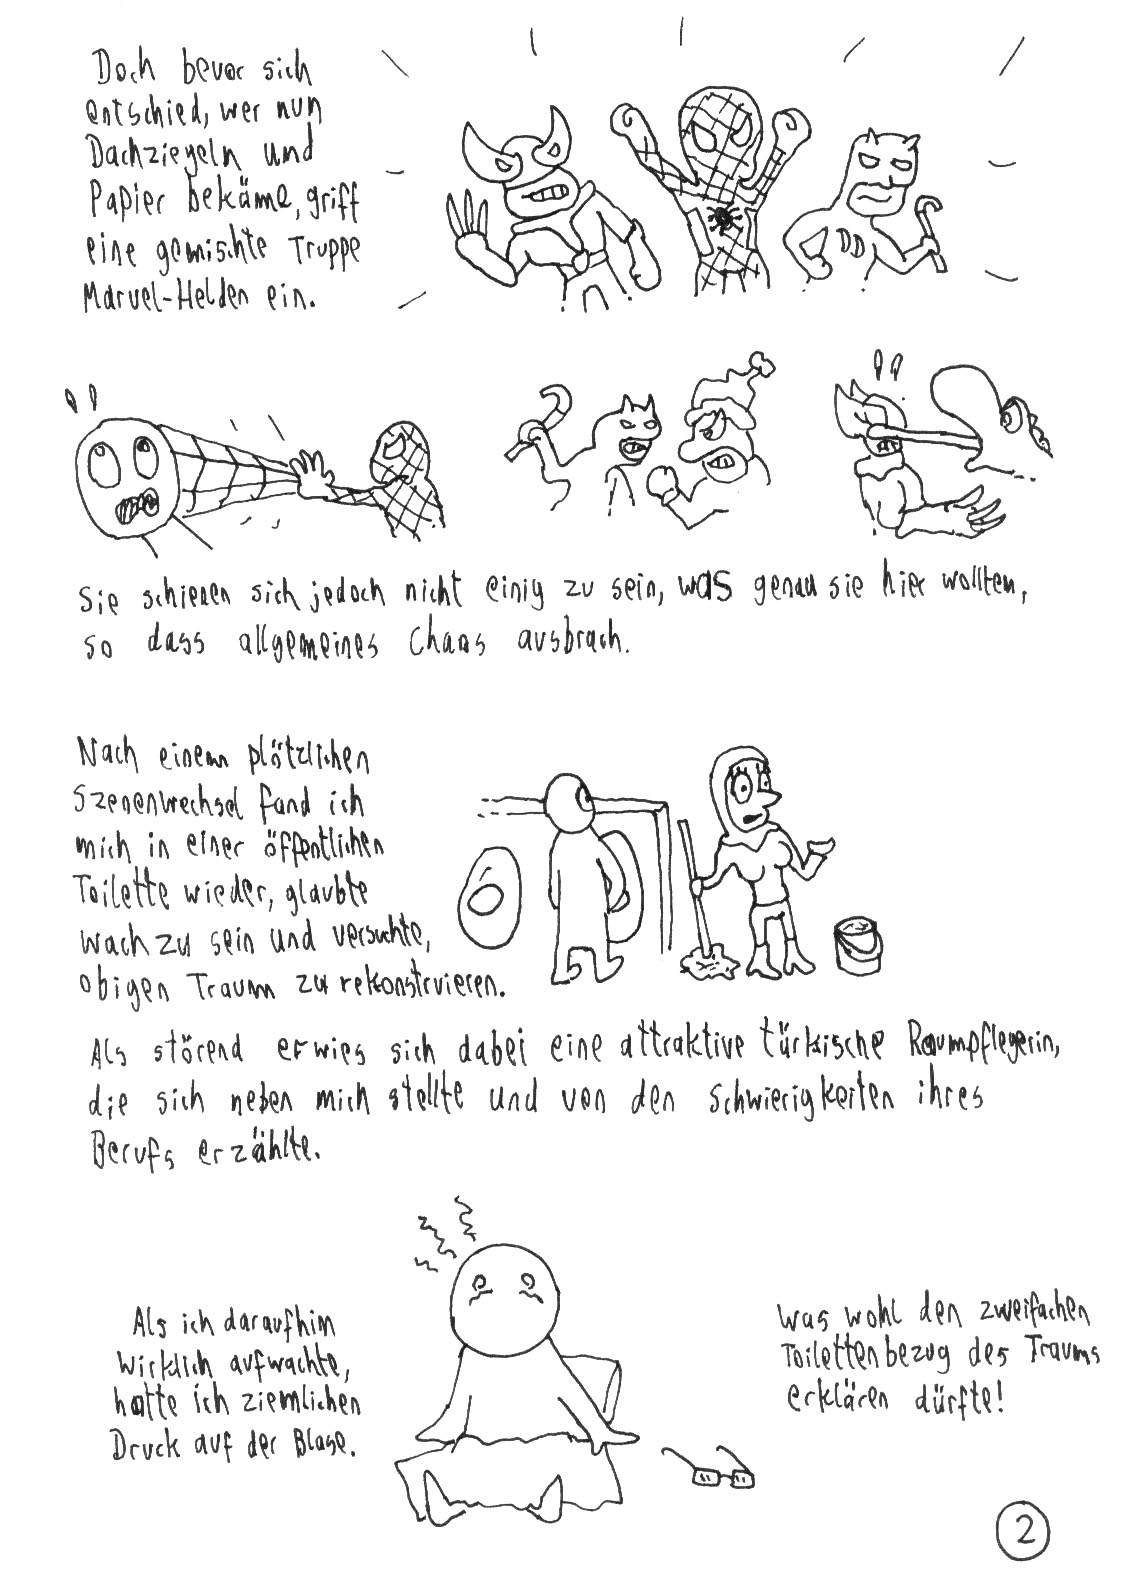 Doch bevor sich
entschied, wer nun
Dachziegeln und
Papier bekäme, griff
eine gemischte Truppe
Marvel-Helden ein.
DD
Sie schienen sich jedoch nicht einig zu sein, was genau sie hier wollten,
so dass allgemeines Chaos ausbrach.
Nach einem plötzlichen
Szenenwechsel fand ich
mich in einer öffentlichen
Toilette wieder, glaubte
wach zu sein und versuchte,
obigen Traum zu rekonstruieren.
Als störend erwies sich dabei eine attraktive türkische Raumpflegerin,
die sich neben mich stellte und von den Schwierigkeiten ihres
Berufs erzählte.
Als ich daraufhin
wirklich aufwachte,
hatte ich ziemlichen
Druck auf der Blase.
Was wohl den zweifachen
Toilettenbezug des Traums
erklären dürfte!
2